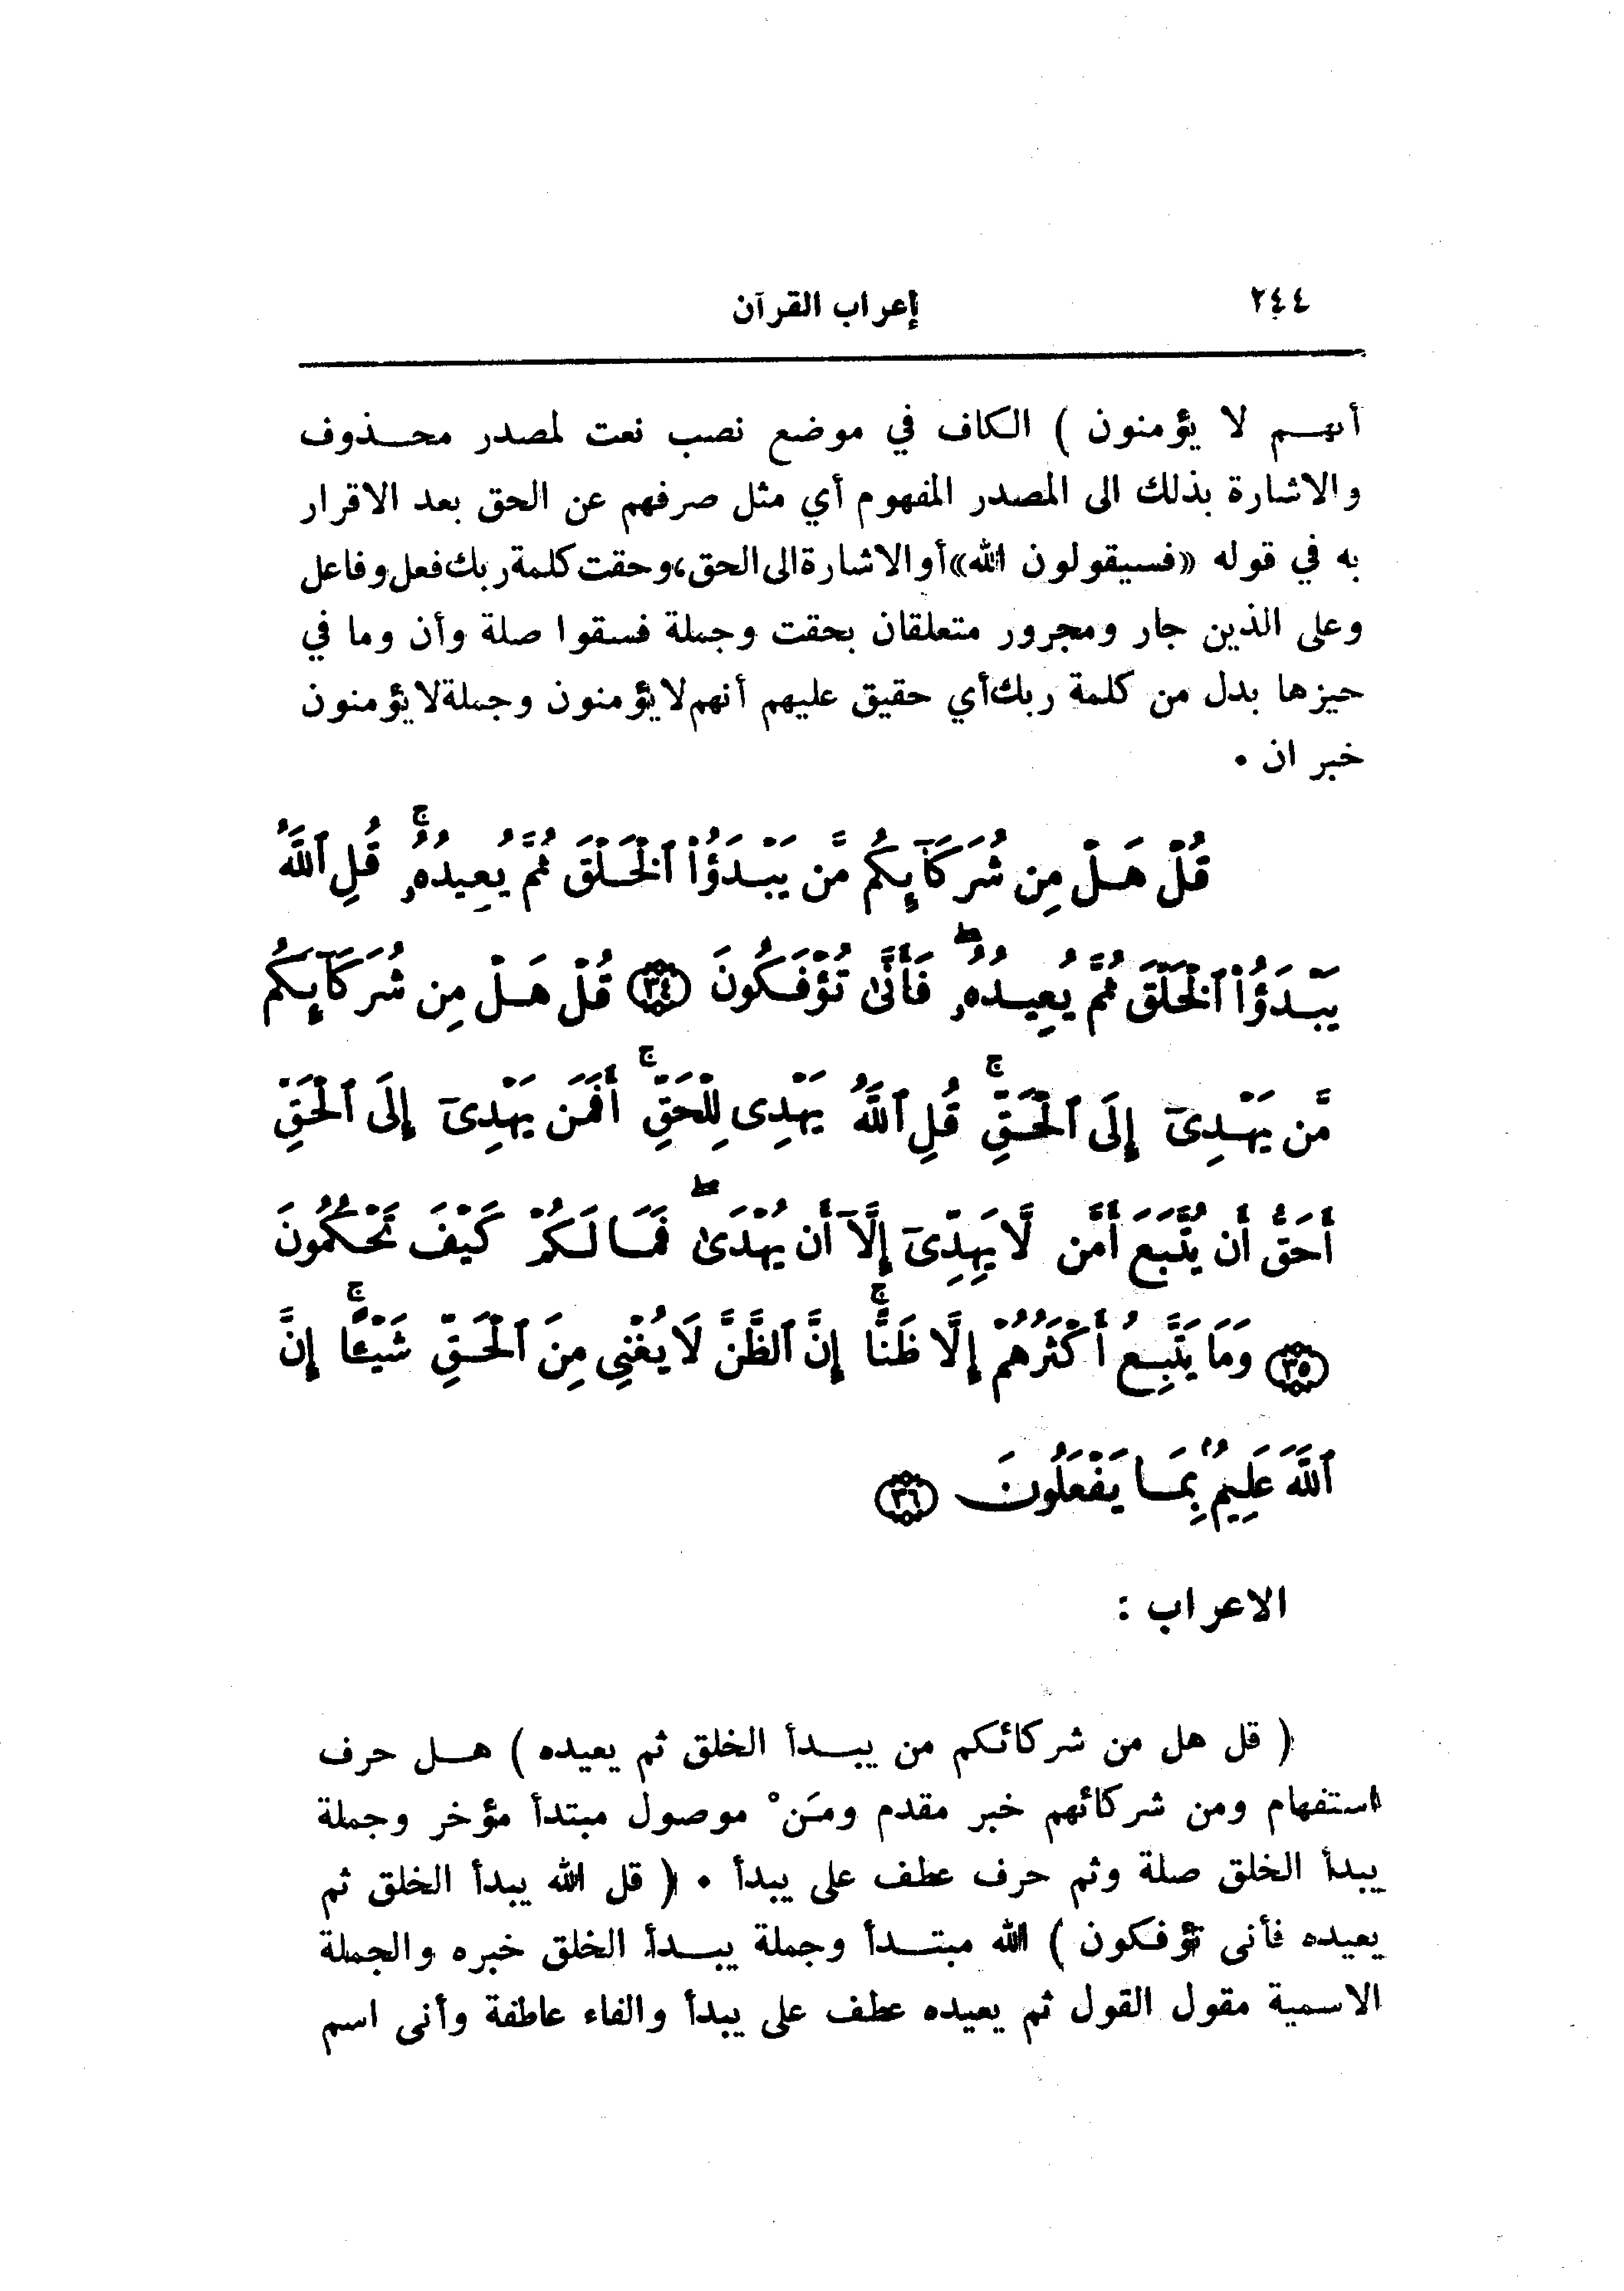 ٢٤٤ إعراب القرآن
أنهم لا يؤمنون ) الكاف في موضع نصب نعت لمصدر محذوف
والاشارة بذلك الى المصدر المفهوم أي مثل صرفهم عن الحق بعد الاقرار
به في قوله «فسيقولون الله» أو الاشارة الى الحق ، وحقت كلمة ربك فعل وفاعل
وعلى الذين جار ومجرور متعلقان بحقت وجملة فسقوا صلة وأن وما في
حيزها بدل من كلمة ربك أي حقيق عليهم أنهم لا يؤمنون وجملة لا يؤمنون
خبر ان .
قُلْ هَلْ مِن شُرَكَآئِكُم مَّن يَبْدَؤُاْ ٱلْخَلْقَ ثُمَّ يُعِيدُهُۥۚ قُلِ ٱللَّهُ
يَبْدَؤُاْ ٱلْخَلْقَ ثُمَّ يُعِيدُهُۥۖ فَأَنَّىٰ تُؤْفَكُونَ ٣٤ قُلْ هَلْ مِن شُرَكَآئِكُم
مَّن يَهْدِىٓ إِلَى ٱلْحَقِّۚ قُلِ ٱللَّهُ يَهْدِى لِلْحَقِّۚ أَفَمَن يَهْدِىٓ إِلَى ٱلْحَقِّ
أَحَقُّ أَن يُتَّبَعَ أَمَّن لَّا يَهِدِّىٓ إِلَّآ أَن يُهْدَىٰۖ فَمَا لَكُمْ كَيْفَ تَحْكُمُونَ
٣٥ وَمَا يَتَّبِعُ أَكْثَرُهُمْ إِلَّا ظَنًّاۚ إِنَّ ٱلظَّنَّ لَا يُغْنِى مِنَ ٱلْحَقِّ شَيْـًٔاۚ إِنَّ
ٱللَّهَ عَلِيمٌۢ بِمَا يَفْعَلُونَ ٣٦
الاعراب :
( قل هل من شركائكم من يبدأ الخلق ثم يعيده ) هل حرف
استفهام ومن شركائهم خبر مقدم ومَنْ موصول مبتدأ مؤخر وجملة
يبدأ الخلق صلة وثم حرف عطف على يبدأ . ( قل الله يبدأ الخلق ثم
يعيده فأنى تؤفكون ) الله مبتدأ وجملة يبدأ الخلق خبره والجملة
الاسمية مقول القول ثم يعيده عطف على يبدأ والفاء عاطفة وأنى اسم